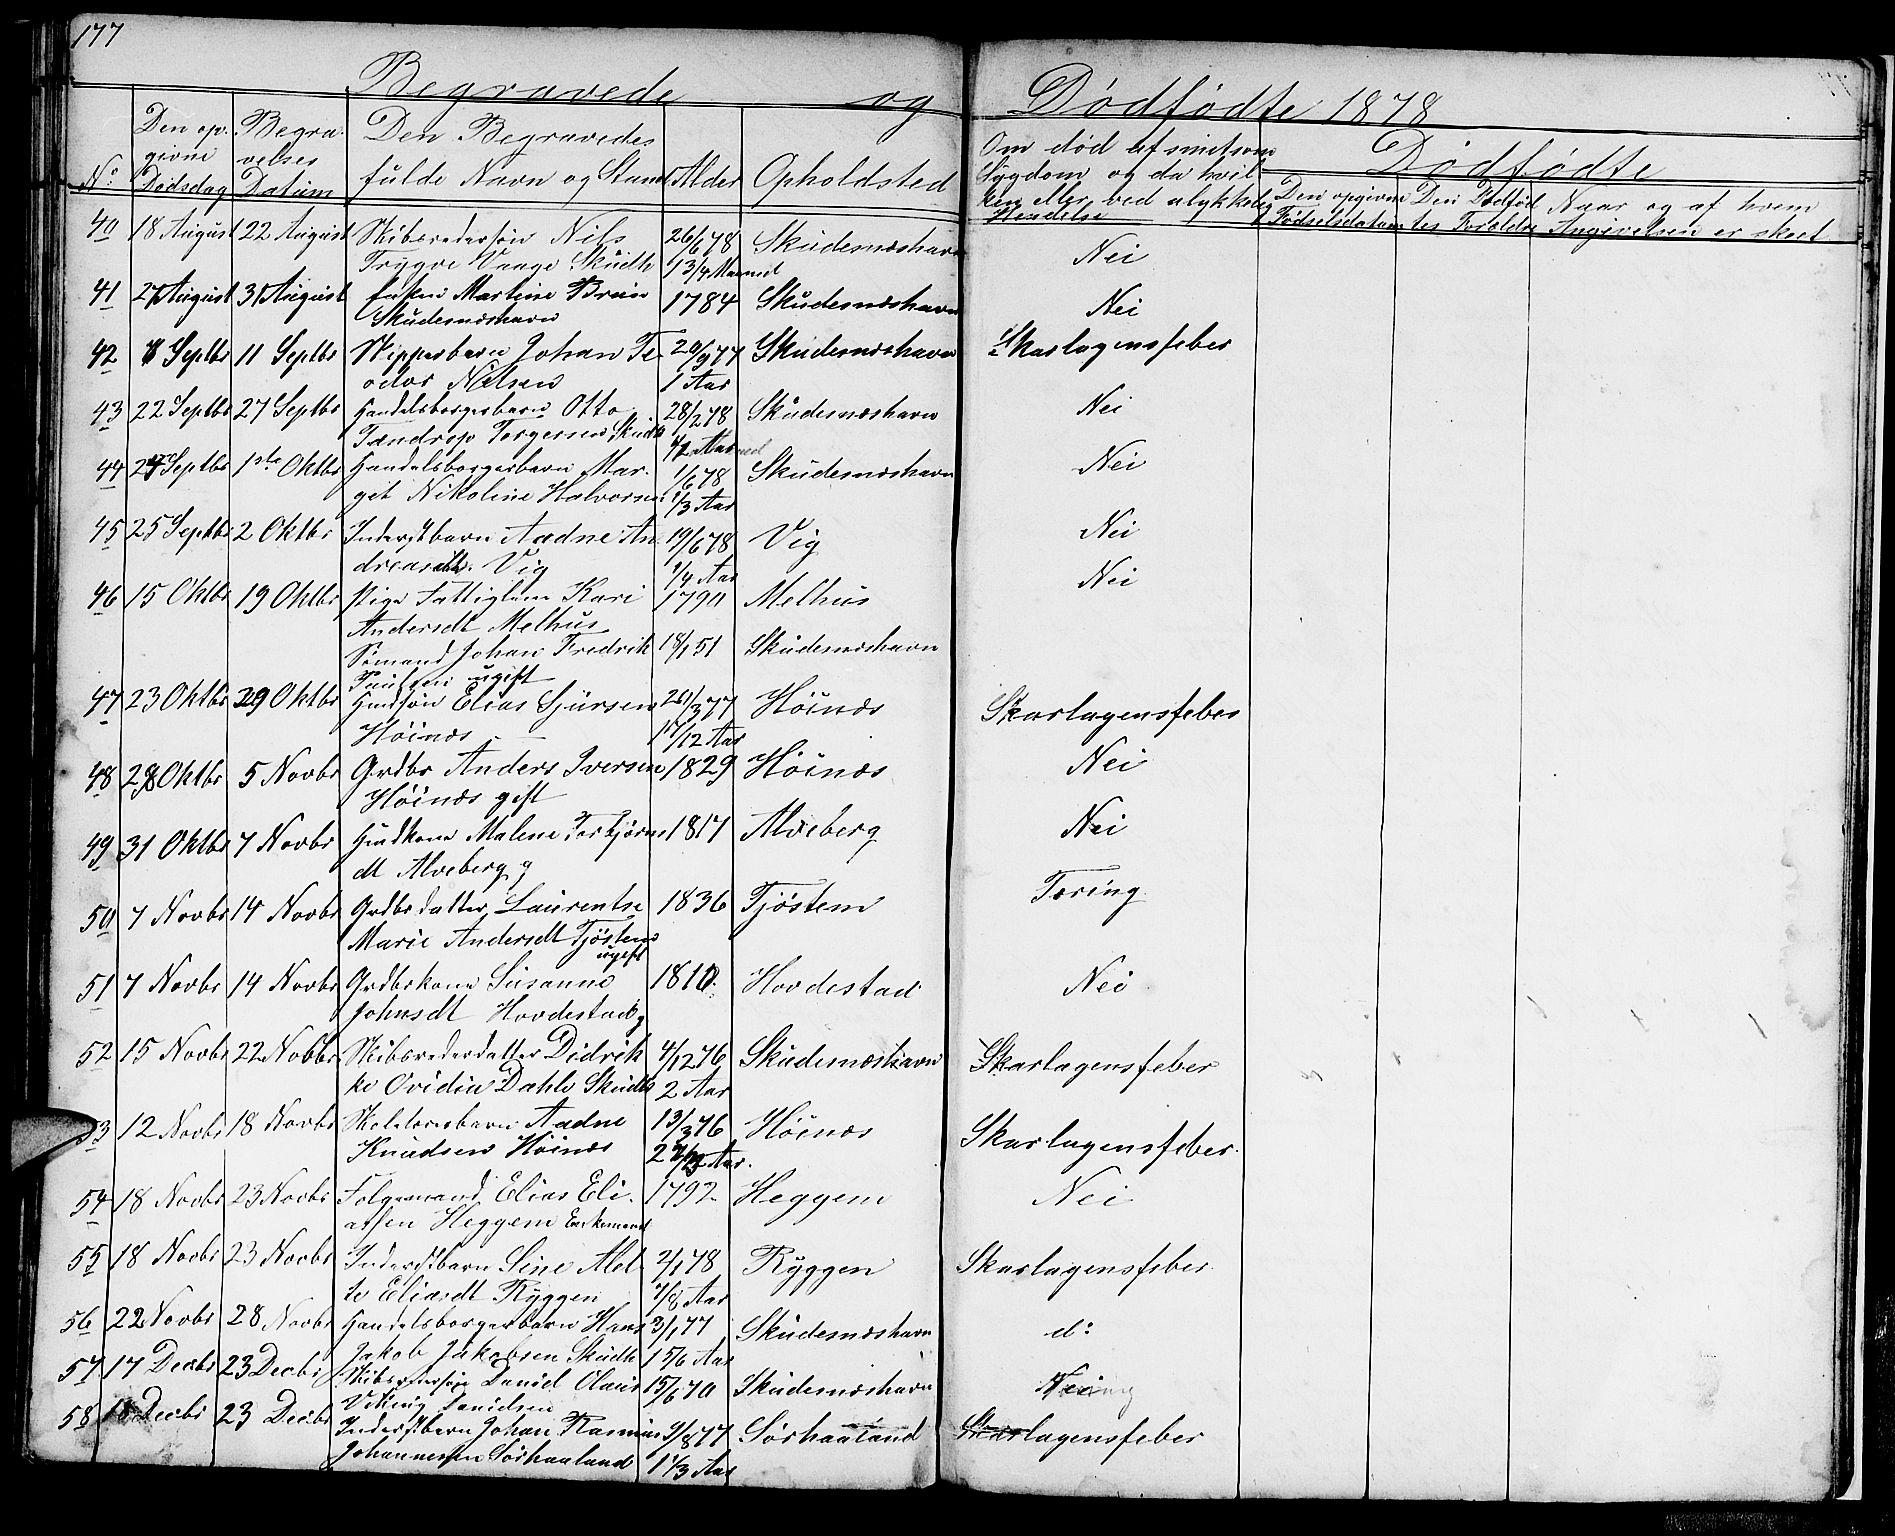 177
Begravede og Dødfødte 1878
No | Den opgivne Dødsdag | Begravelses Datum | Den Begravedes fulde Navn og Stand | Alder | Opholdsted | Om død af smitsom Sygdom og da hvilken eller ved ulykkelig Hendelse | Dødfødte
Den opgivne Fødselsdatum | Den Dødfødtes Forældre | Naar og af hvem Angivelsen er skeet
40 18 August 22 August Skibsredersøn Nils 26/6 78 Skudesnæshavn Nei
Trygve Vaage Skudh 1 3/4 Maaned
41 27 August 31 August Martine Bruun 1784 Skudesnæshavn Nei
Skudesnæshavn
42 8 Septbr 11 Septbr Skipperbarn Johan Te- 20/9 77 Skudesnæshavn Skarlagensfeber
odor Nilsen 1 Aar
43 22 Septbr 27 Septbr Handelsborgerbarn Otto 28/2 78 Skudesnæshavn Nei
Tændrup Torgersen Skudh 1/2 Aar
44 24 Septbr 1ste Oktbr Handelsborgerbarn Mar- 1/6 78 Skudesnæshavn Nei
git Nikoline Halvorsen 1/3 Aar
45 25 Septbr 2 Oktbr Inderstbarn Aadne An- 19/6 78 Vig Nei
dreas Vig 1/4 Aar
46 15 Oktbr 19 Oktbr pige Fattiglem Kari 1790 Melhus Nei
Andersdt Melhus
Sømand Johan Fredrik 18/1 51 Skudesnæshavn
Paulsen ugift
47 23 Oktbr 29 Oktbr Elias Sjursen 20/3 77 Höinæs Skarlagensfeber
Höinæs 1 7/12 Aar
48 28 Oktbr 5 Novbr Grdbr Anders Iversen 1829 Höinæs Nei
Höinæs gift
49 31 Oktbr 7 Novbr Malene Torbjørns 1817 Alveberg Nei
dt Alveberg g
50 7 Novbr 14 Novbr Grdbrdatter Laurentse 1836 Tjöstem Tæring
Marie Andersdt Tjöstem
ugift
51 7 Novbr 14 Novbr Grdbrkone Susanne 1810 Hovdestad Nei
Johnsdt Hovdestad g
52 15 Novbr 22 Novbr Skibsrederdatter Didrik- 4/12 76 Skudesnæshavn Skarlagensfeber
ke Ovidia Dahle Skudh 2 Aar
53 12 Novbr 18 Novbr Skolelærerbarn Aadne 13/3 76 Höinæs Skarlagensfeber
Knudsen Höinæs 2 Aar
54 18 Novbr 23 Novbr Folgemand Elias Eli- 1792 Heggem Nei
assen Heggem Enkemand
55 18 Novbr 23 Novbr Inderstbarn Sine Mel- 2/1 78 Ryggen Skarlagensfeber
Eliasdt Ryggen 7/8 Aar
56 22 Novbr 28 Novbr Handelsborgerbarn Hans 3/1 77 Skudesnæshavn do
Jakob Jakobsen Skudh 1 5/6 Aar
57 17 Decbr 23 Decbr Daniel Olaus 15/6 70 Skudesnæshavn Nei
Viking Danielsen
58 18 Decbr 23 Decbr Inderstbarn Johan Rasmus 9/8 77 Sörhaaland Skarlagensfeber
Johannessen Sörhaaland 1 1/3 Aar